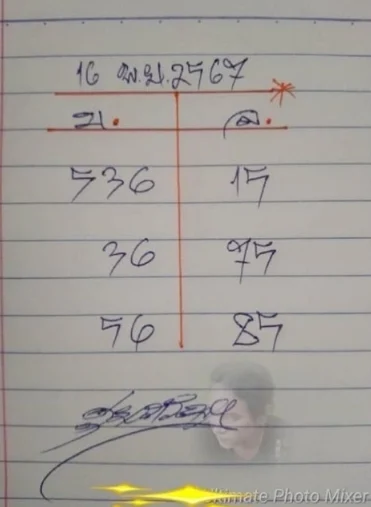 16 พ.ย.2567
บ. ล.
536 15
36 75
56 85
Ultimate Photo Mixer